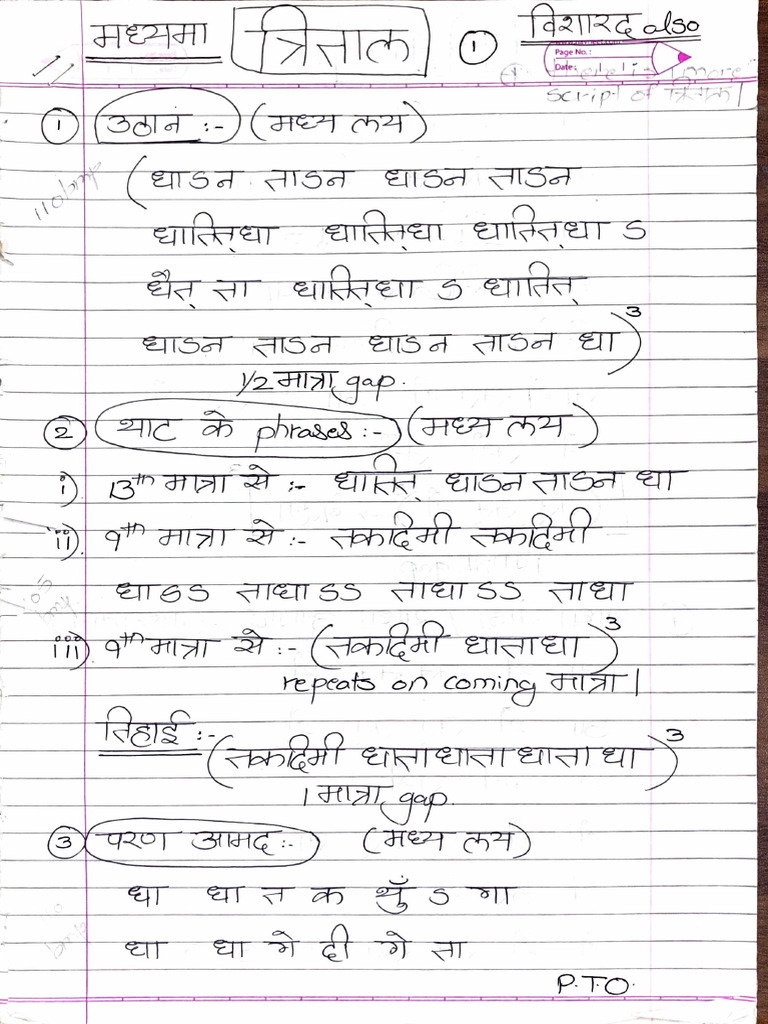 मध्यमा त्रिताल ① विशारद also
Page No.:
Date:
script of त्रिताल।
① उठान :- (मध्य लय)
110 bit
(धाऽन ताऽन धाऽन ताऽन
धातित्धा धातित्धा धातित्धा ऽ
धैत् ता धातित्धा ऽ धातित्
धाऽन ताऽन धाऽन ताऽन धा)³
1/2 मात्रा gap.
② थाट के phrases :- (मध्य लय)
i). 13th मात्रा से :- धातित् धाऽन ताऽन धा
ii). 9th मात्रा से :- तकदिमी तकदिमी
धा ऽऽ ताधा ऽऽ ताधा ऽऽ ताधा
iii) 9th मात्रा से :- (तकदिमी धाताधा)³
repeats on coming मात्रा।
तिहाई :-
(तकदिमी धाताधाताधाता धा)³
1 मात्रा gap.
③ परण आमद :- (मध्य लय)
धा धा त क थुँ ऽ गा
धा धा गे दी गे ता
P.T.O.